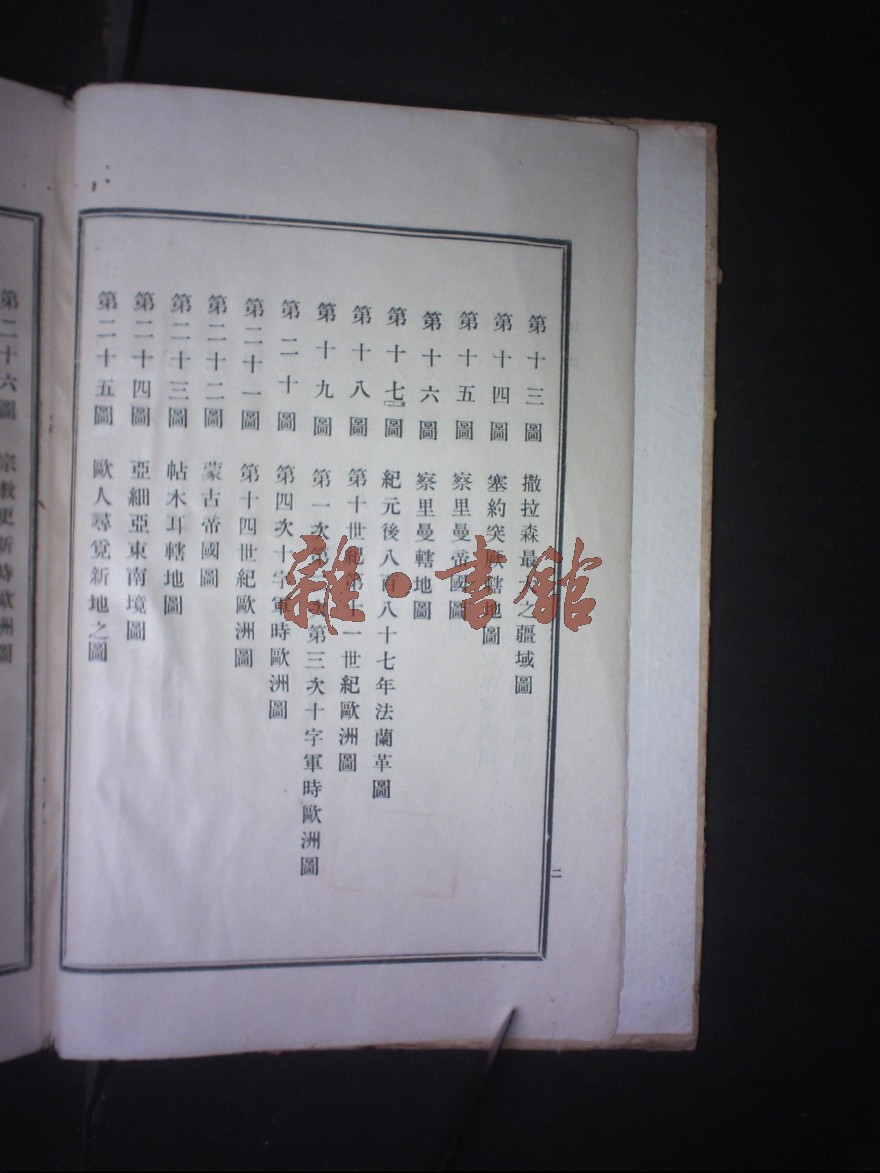 第十三圖 撒拉森最大之疆域圖
第十四圖 塞約突厥轄地圖
第十五圖 察里曼帝國圖
第十六圖 察里曼轄地圖
第十七圖 紀元後八百八十七年法蘭革圖
第十八圖 第十世紀第十一世紀歐洲圖
第十九圖 第一次第二次第三次十字軍時歐洲圖
第二十圖 第四次十字軍時歐洲圖
第二十一圖 第十四世紀歐洲圖
第二十二圖 蒙古帝國圖
第二十三圖 帖木耳轄地圖
第二十四圖 亞細亞東南境圖
第二十五圖 歐人尋覓新地之圖
第二十六圖 宗教更新時歐洲圖
二
雜·書館